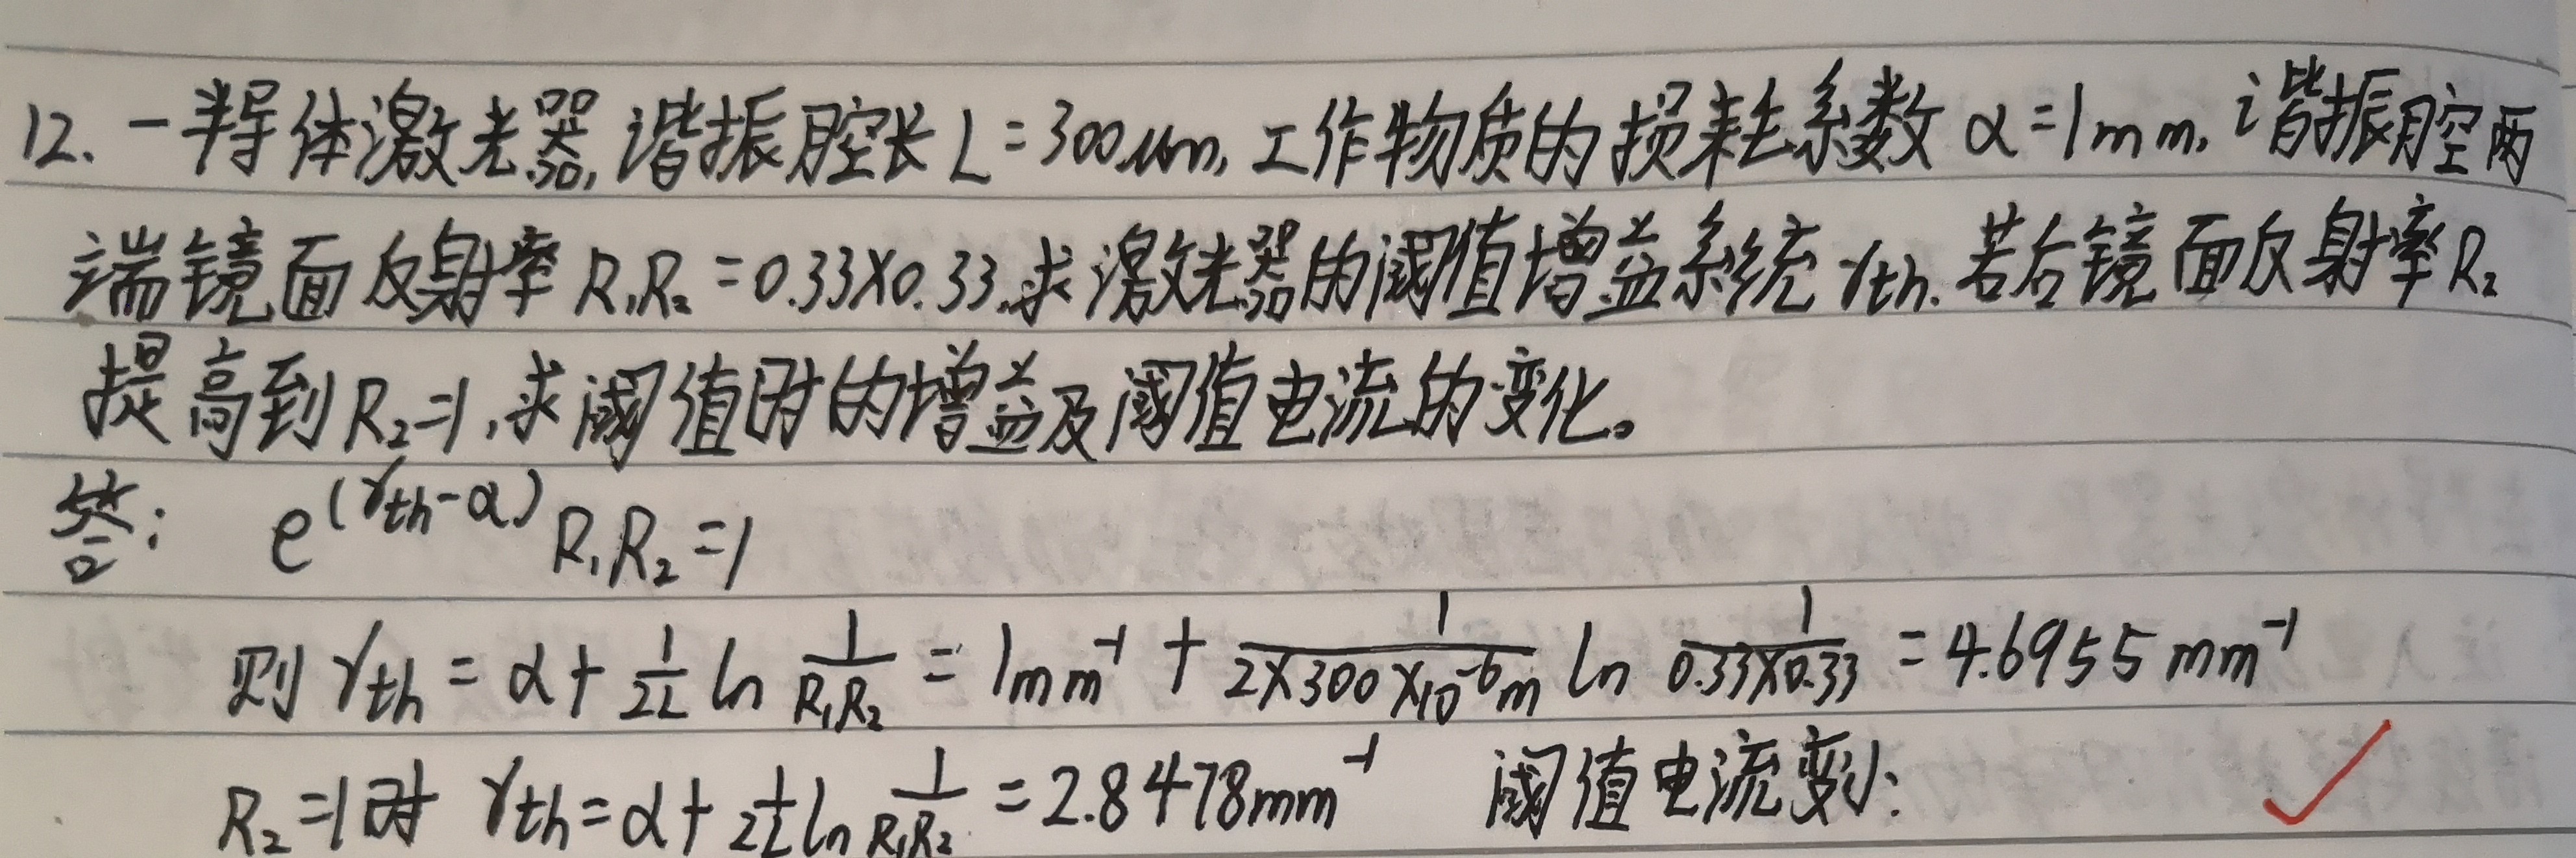 12. 一半导体激光器,谐振腔长L=300μm,工作物质的损耗系数α=1mm,谐振腔两
端镜面反射率R₁R₂=0.33×0.33,求激光器的阈值增益系统γth.若右镜面反射率R₂
提高到R₂=1,求阈值时的增益及阈值电流的变化。
答: e^(γth-α) R₁R₂=1
则 γth = α + 1/2L ln 1/R₁R₂ = 1mm⁻¹ + 1/2×300×10⁻⁶m ln 1/0.33×0.33 = 4.6955mm⁻¹
R₂=1时 γth = α + 1/2L ln 1/R₁R₂ = 2.8478mm⁻¹ 阈值电流变小.